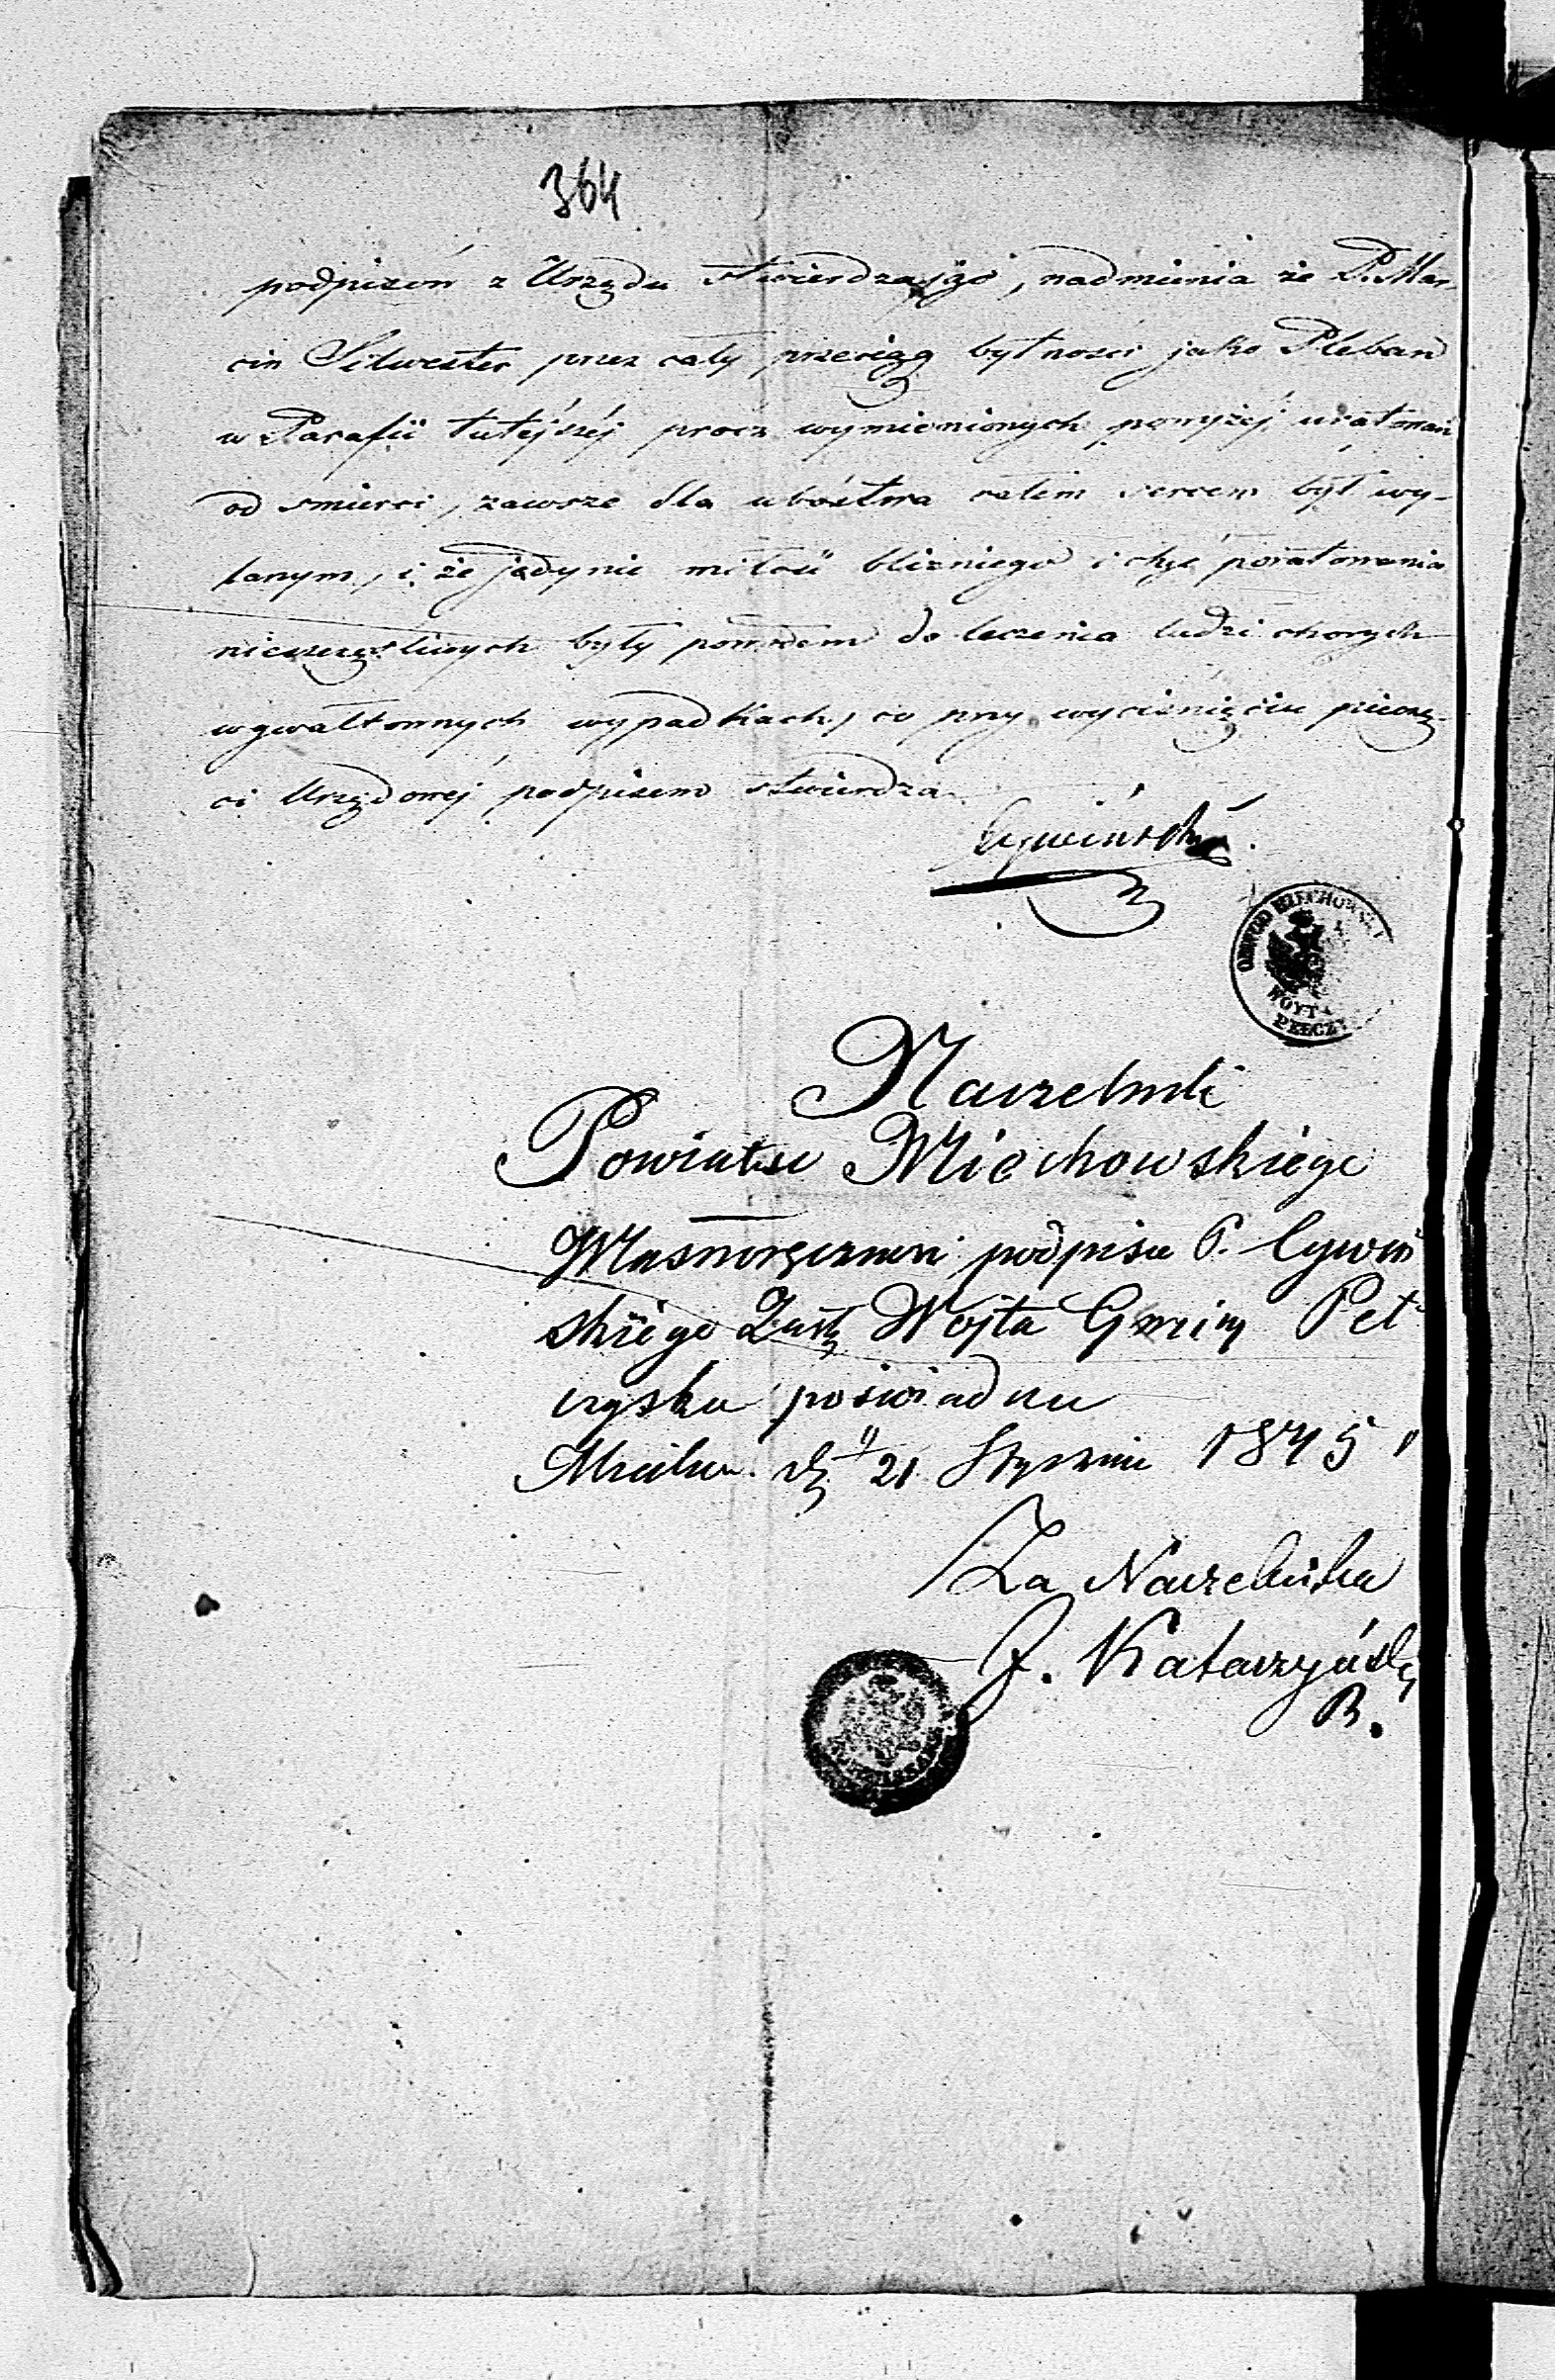 364
podpisów z Urzędu stwierdzający, nadmienia że P. Mar-
cin Silwester przez cały przeciąg bytności jako Pleban
w Parafii tutejszéj procz wymienionych powyżéj uratowań
od smierci, zawsze dla ubóstwa całem sercem był wy-
lanym, i że jedynie miłość bliźniego i chęć poratowania
nieszczęśliwych były powodem do leczenia ludzi chorych
w gwałtownych wypadkach, co przy wyciśnięciu pieczę-
ci Urzędowéj podpisem stwierdza
Cywiński
OBWÓD MIECHOWSKI
WOYT
PEŁCZ
Naczelnik
Powiatu Miechowskiego
Własnoręczność podpisu P. Cywiń
skiego Zastę Wójta Gminy Peł
czyska poświadcza
Miechów d. 21 Stycznia 1845
Za Naczelnika
J. Katarzyński